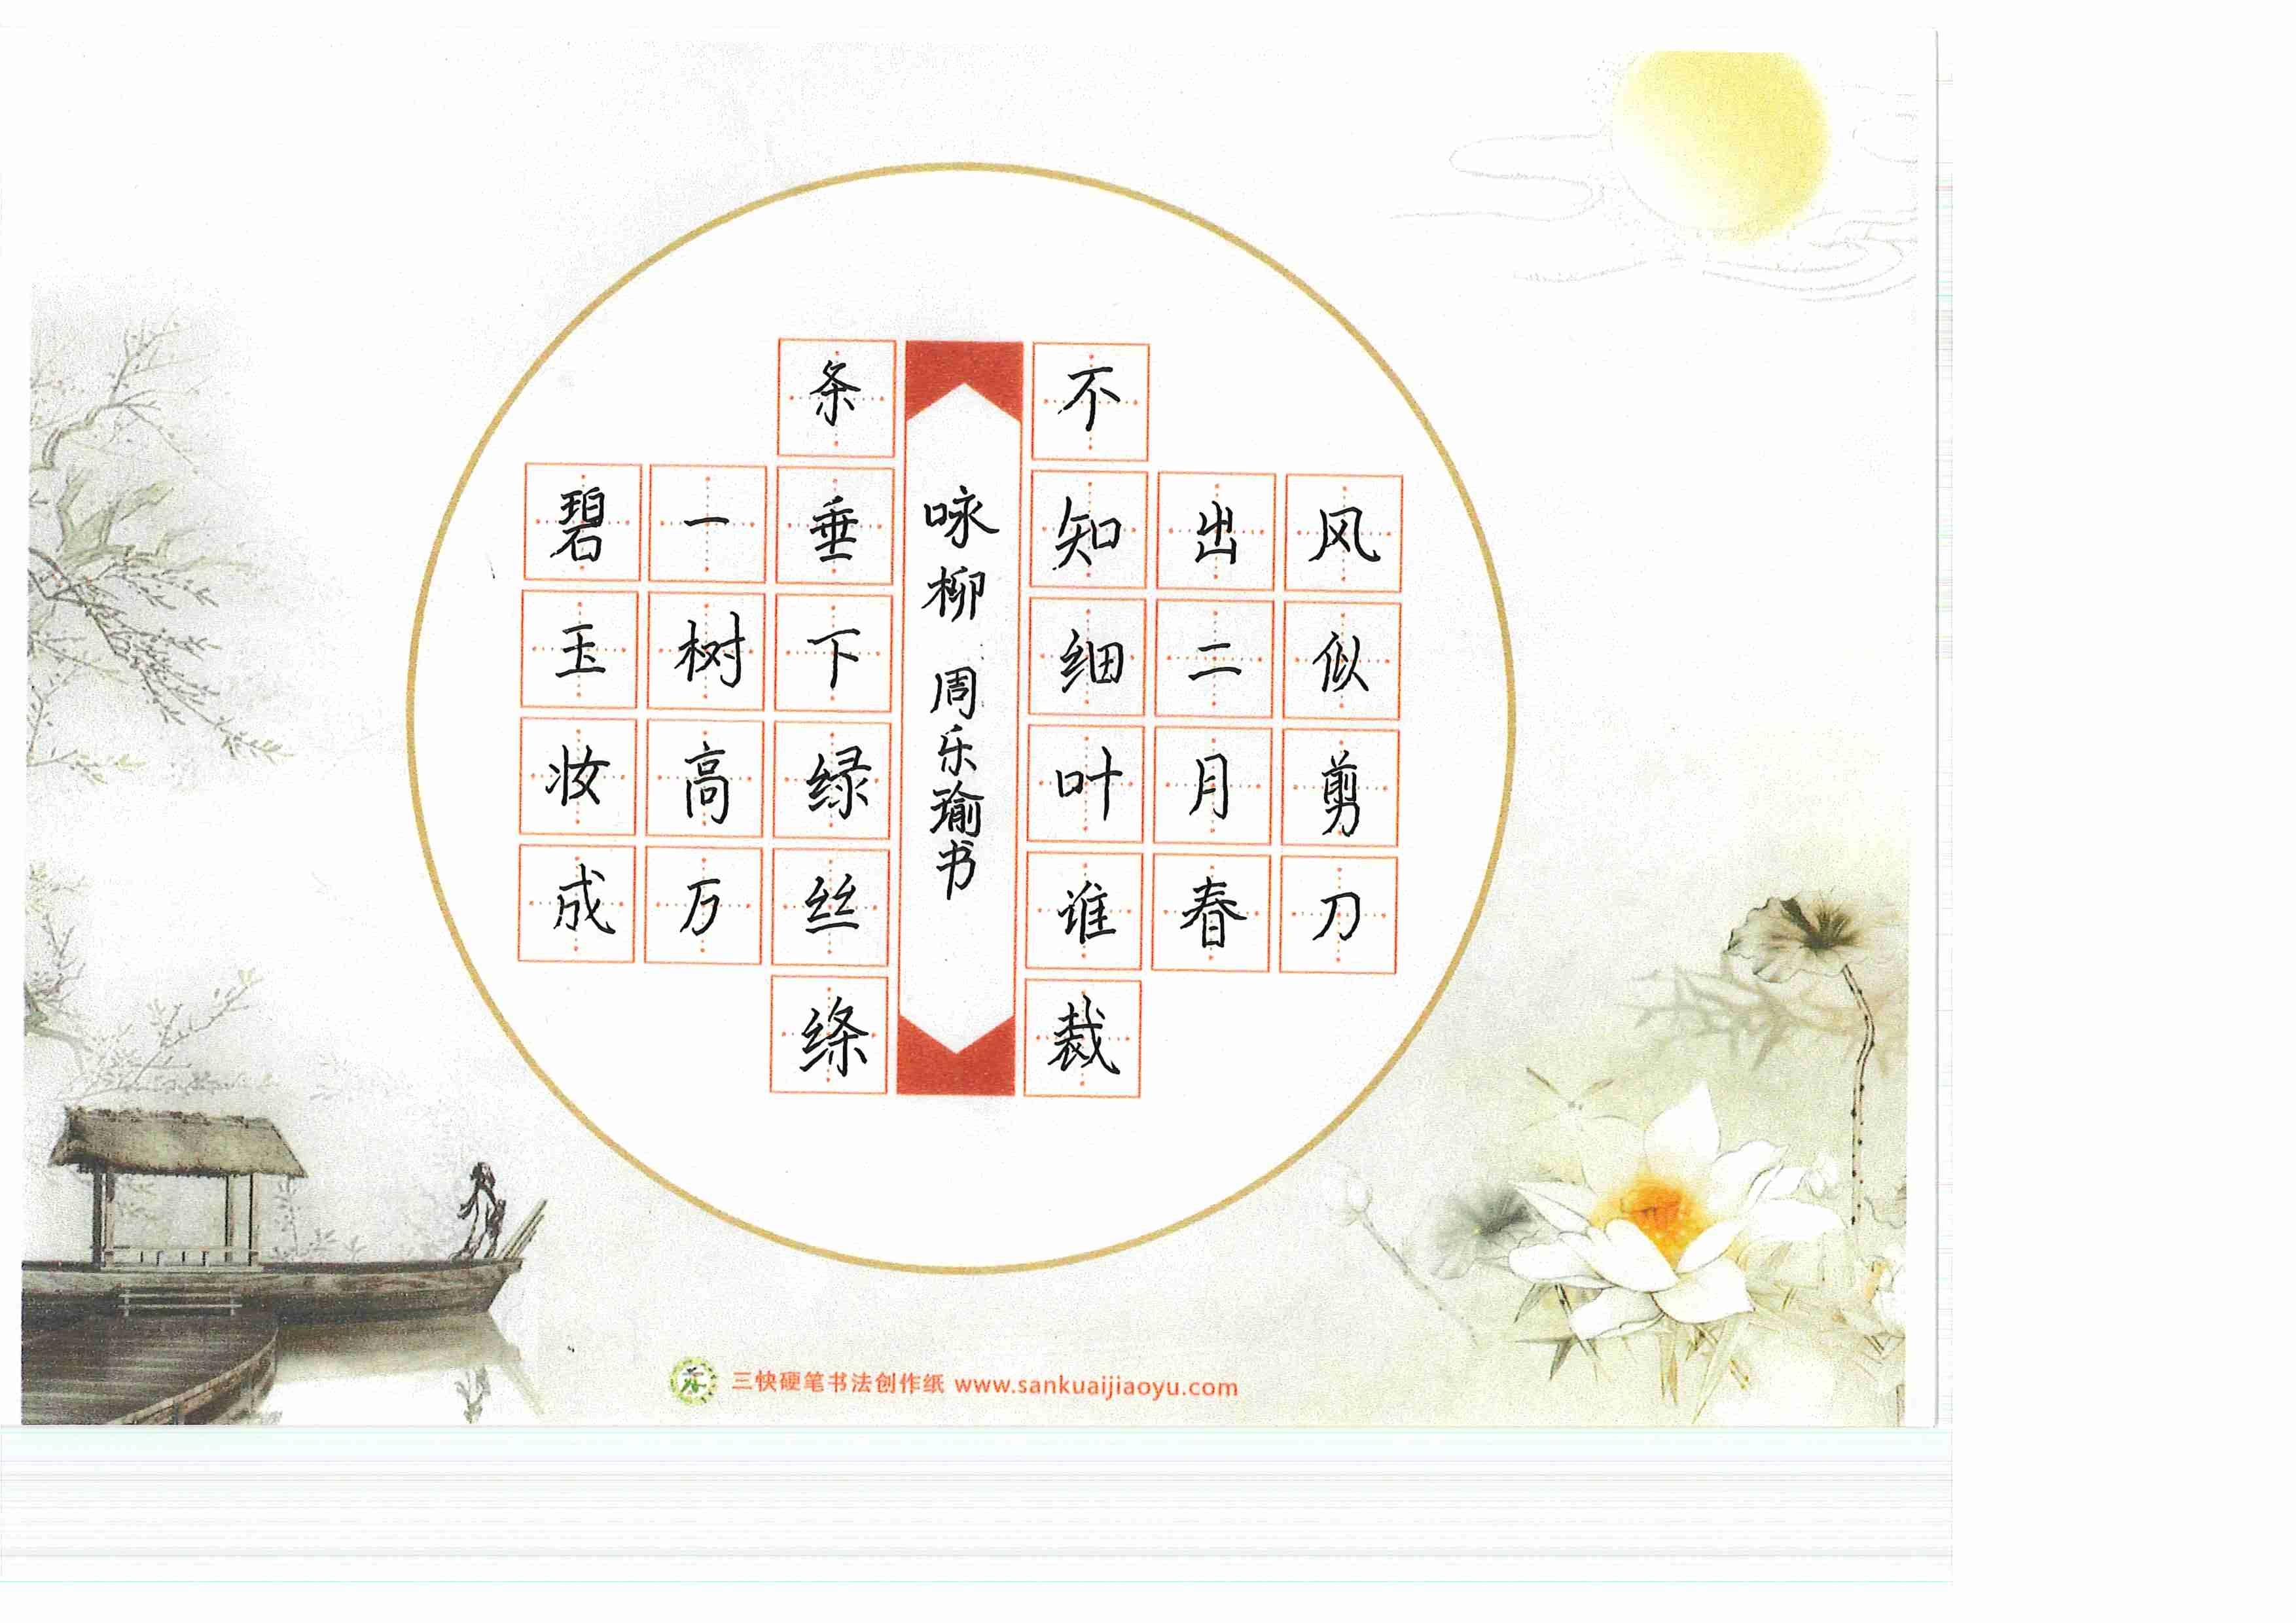 碧玉妆成
一树高万
条垂下绿丝绦
咏柳 周乐瑜书
不知细叶谁裁
出二月春
风似剪刀
三快硬笔书法创作纸 www.sankuaijiaoyu.com